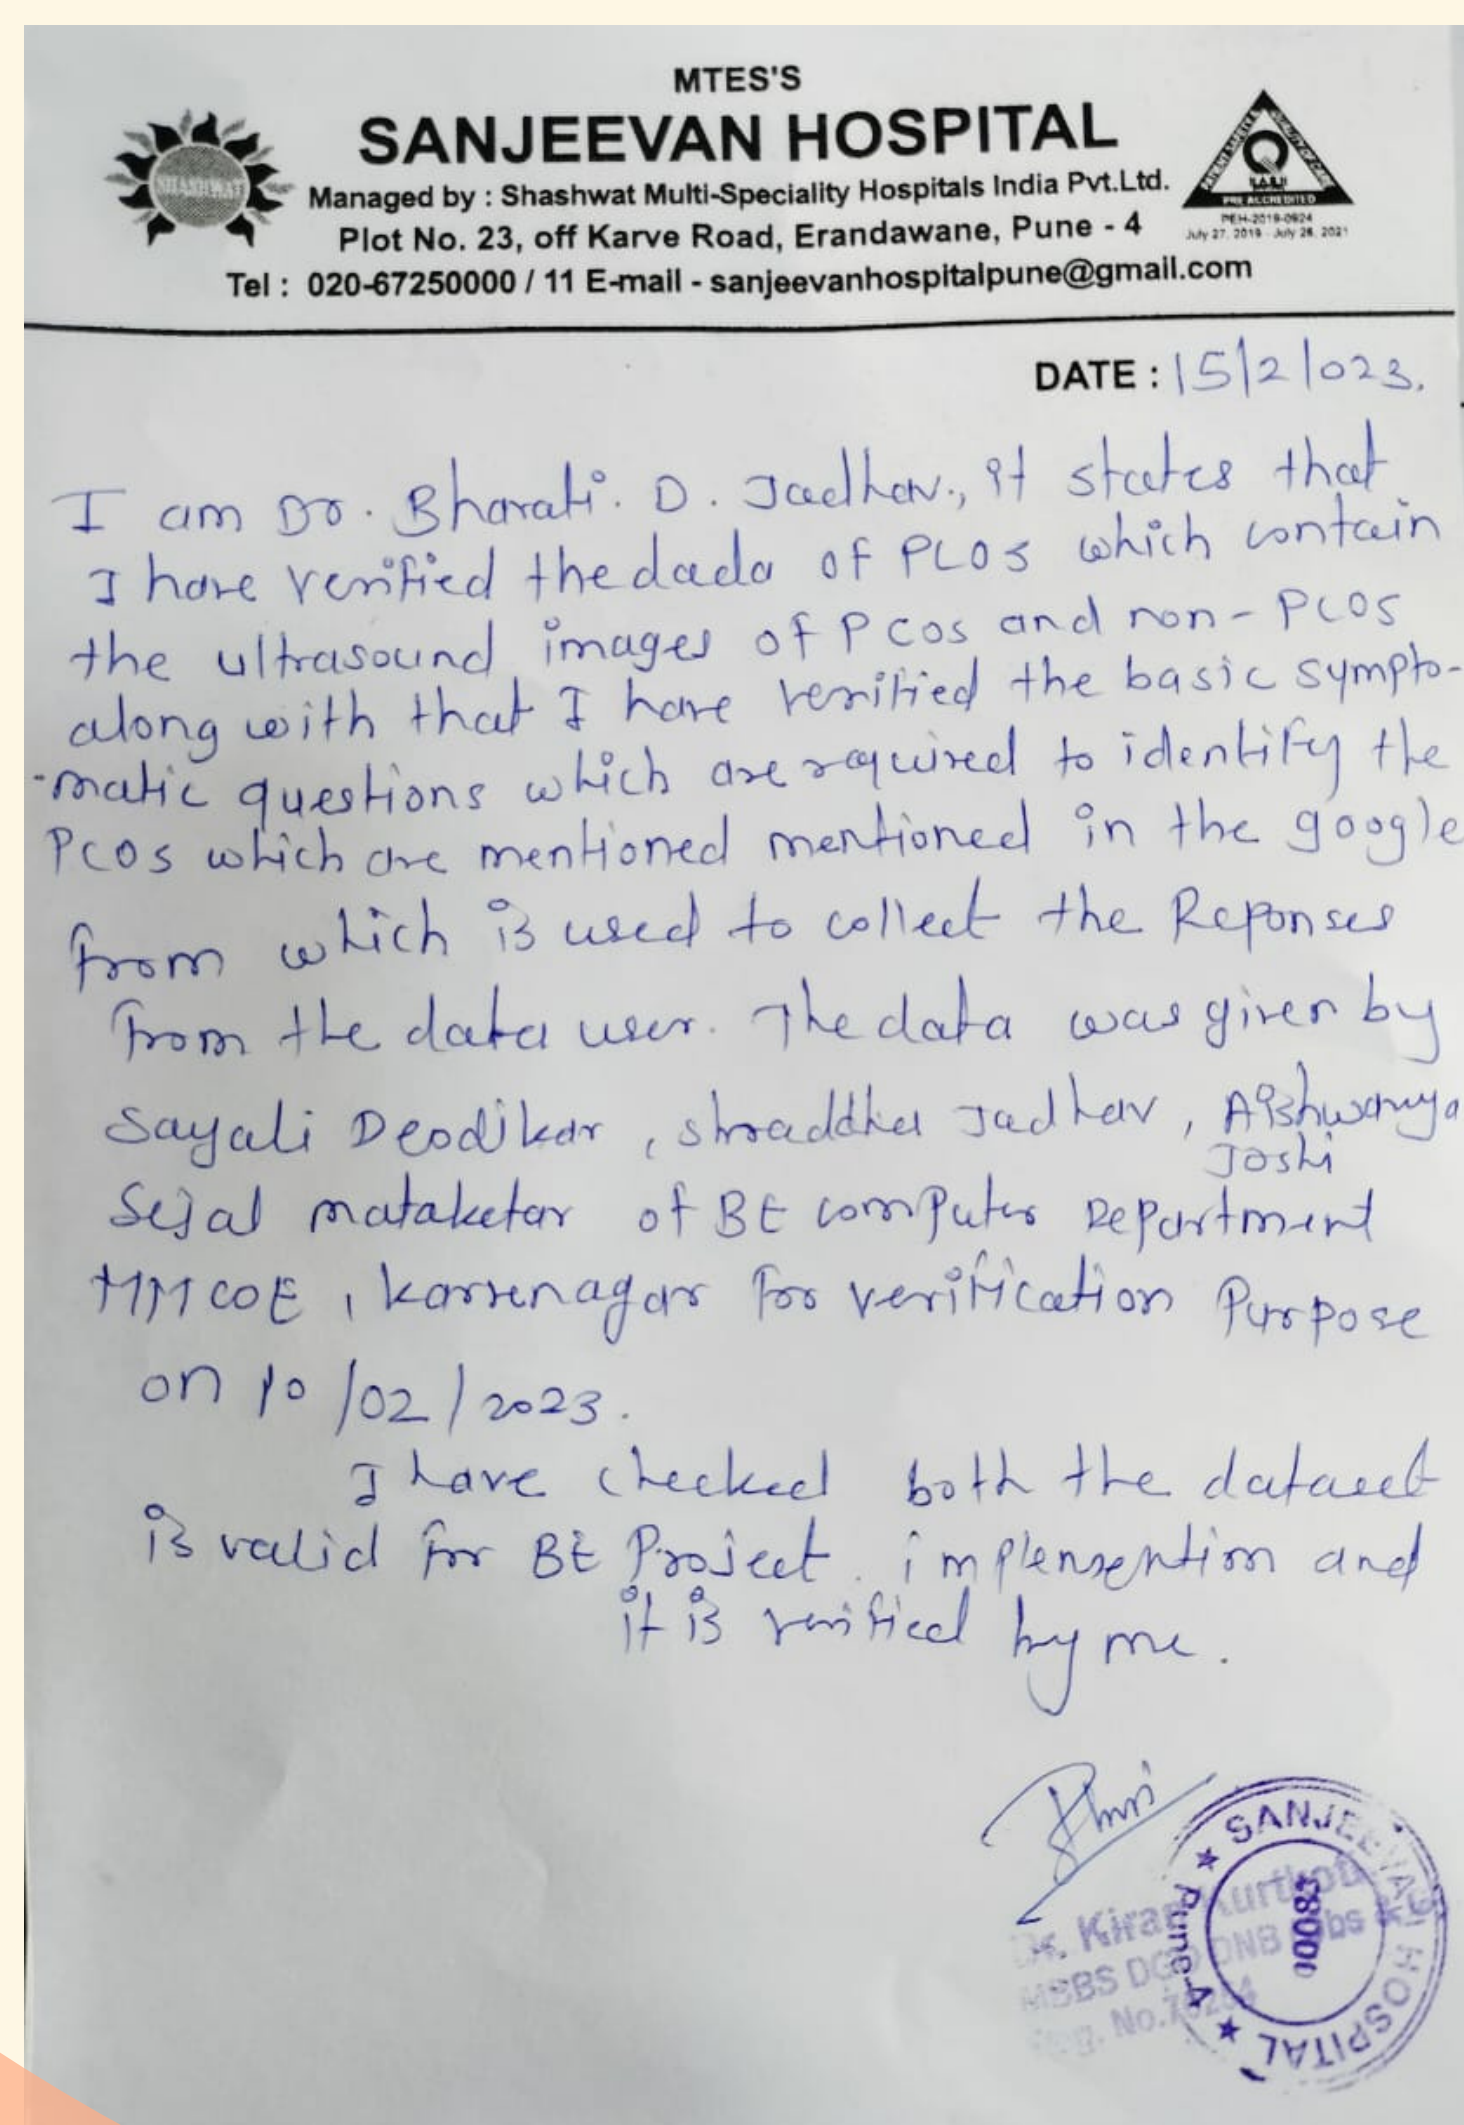 MTES'S
SANJEEVAN HOSPITAL
Managed by : Shashwat Multi-Speciality Hospitals India Pvt.Ltd.
Plot No. 23, off Karve Road, Erandawane, Pune - 4
Tel : 020-67250000 / 11 E-mail - sanjeevanhospitalpune@gmail.com
SHASHWAT
PRE ACCREDITED
PEH-2019-0924
July 27, 2019 - July 26, 2021
DATE : 15/2/023.
I am Dr. Bharati. D. Jadhav., it states that
I have verified the dada of PCOS which contain
the ultrasound images of PCOS and non-PCOS
along with that I have verified the basic sympto-
-matic questions which are required to identify the
PCOS which are mentioned mentioned in the google
from which is used to collect the Reponses
from the data user. The data was given by
Sayali Deodikar, shraddha Jadhav, Aishwarya
Joshi
Sejal matakekar of BE computer Department
MMCOE, karvenagar for verification Purpose
on 10/02/2023.
I have checked both the dataset
is valid for BE Project. implemention and
it is verified by me.
Dr. Kiran Kurtkoti
MBBS DGO DNB Obs &
No.
SANJEEVAN HOSPITAL
Pune-4
00083